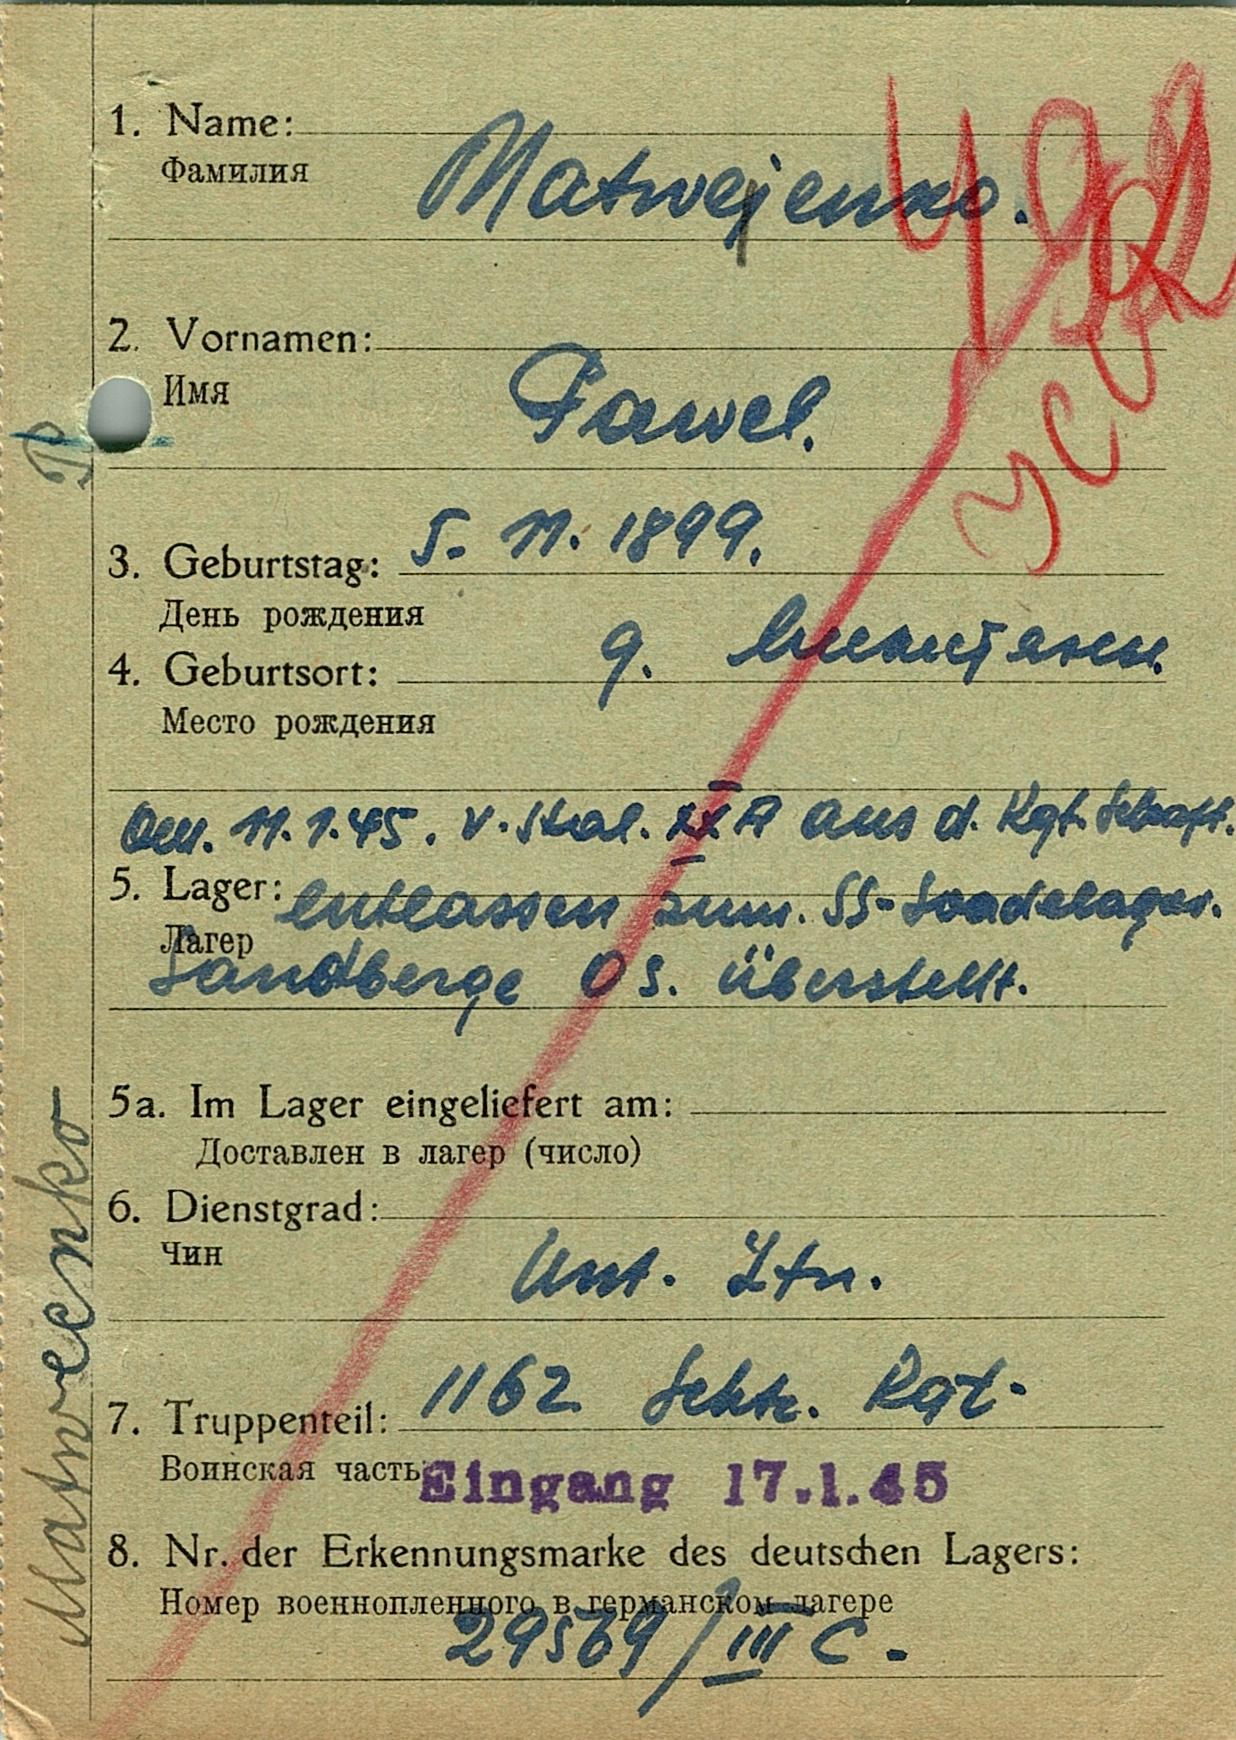 1. Name:
Фамилия
Matwejenko.
2. Vornamen:
Имя
Pawel.
3. Geburtstag: 5. 11. 1899.
День рождения
4. Geburtsort: g.
Место рождения
Am. 11.1.45. v. Stal. XX A aus d. Kgf. Schaft.
5. Lager: entlassen zum. SS-Sondelager.
Лагер
Sandberge OS. überstellt.
5a. Im Lager eingeliefert am:
Доставлен в лагер (число)
6. Dienstgrad:
Чин
Unt. Ltn.
7. Truppenteil: 1162 Schtz. Rgt.
Воинская часть
Eingang 17.1.45
8. Nr. der Erkennungsmarke des deutschen Lagers:
Номер военнопленного в германском лагере
29569/III C.
Matweenko P
УСССР